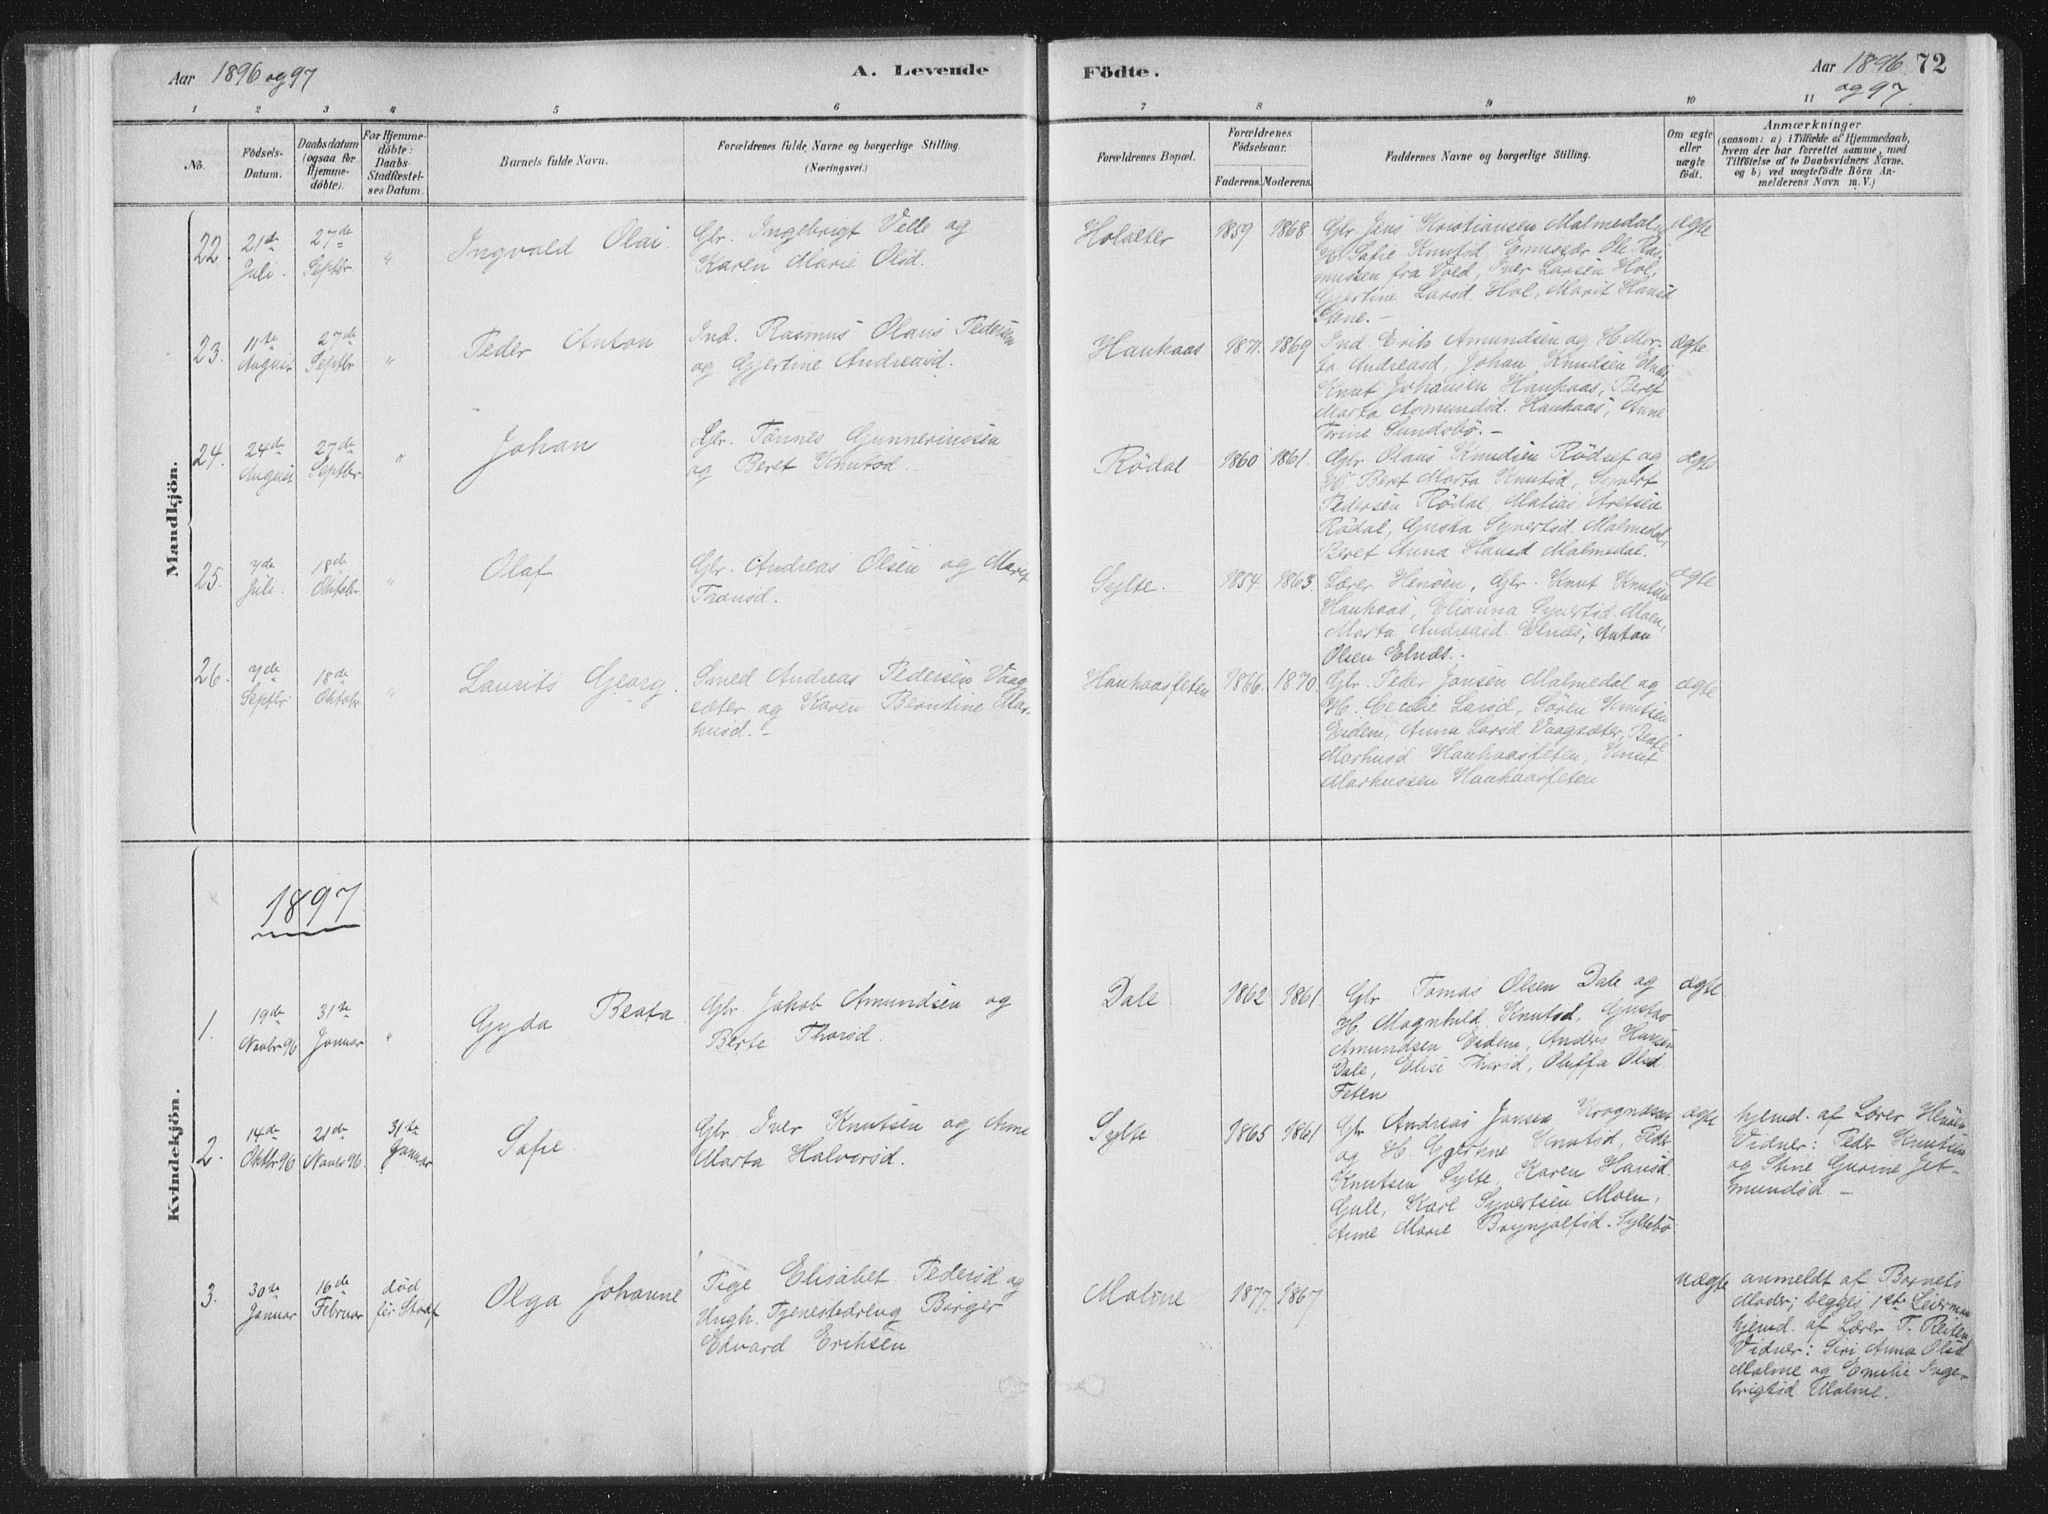 Aar 1896 og 97
A. Levende
Födte.
Aar 1896 72
og 97.
1 2 3 4 5 6 7 8 9 10 11
No.
Födsels-
Datum.
Daabsdatum
(ogsaa for
Hjemme-
döbte).
For Hjemme-
döbte:
Daabs-
Stadfæstel-
ses Datum.
Barnets fulde Navn.
Forældrenes fulde Navne og borgerlige Stilling.
(Næringsvei.)
Forældrenes Bopæl.
Forældrenes
Födselsaar.
Faderens. Moderens.
Faddernes Navne og borgerlige Stilling.
Om ægte
eller
uægte
födt.
Anmærkninger
(saasom: a) i Tilfælde af Hjemmedaab,
hvem der har forrettet samme, med
Tilföielse af to Daabsvidners Navne.
og b) ved uægtefödte Börn An-
melderens Navn m. V.)
Mandkjön.
22.
21de
Juli.
27de
Septbr
"
Ingvald Olai
Gbr. Ingebrigt Velle og
Karen Marie Olsd.
Holsæter
1859 1868
Gbr Jens Kristiansen Malmedal
H. Sofie Knutsd, Ole Ras-
musen fra Vold, Iver Larsen Hol,
Gjertine Larsd. Hol, Marit Hansd
Stene.-
ægte
23.
11te
August
27de
Septbr
"
Peder Anton
Ind. Rasmus Olaus Pedersen
og Gjertine Andreasd.
Haukaas
1871. 1869
Ind. Erik Amundsen og H. Mar-
ta Andreasd, Johan Knudsen Elnes,
Knut Johansen Haukaas, Beret
Marta Asmundsd. Haukaas, Anne
Torine Sundsbö.-
ægte
24.
24de
August
27de
Septbr
"
Johan
Gbr. Tönnes Gunneriussen
og Beret Knutsd
Rödal
1860 1861.
Gbr. Olaus Knudsen Rödset og
H. Beret Marta Knutsd, Syvert
Pedersen Rödal, Matias Aretsen
Rödal, Gusta Syvertsd Malmedal,
Beret Anna Hansd Malmedal.
ægte
25.
7de
Juli.
18de
Oktobr.
"
Olaf
Gbr. Andreas Olsen og Marit
Tronsd.
Sylte.
1854. 1863.
Lærer Henöen, Gbr. Knut Knutsen
Haukaas, Elianna Syvertsd. Moen,
Marta Andreasd. Elnes, Anton
Olsen Elnes.-
ægte
26.
7de
Septbr
18de
Oktobr
"
Laurits Georg.
Smed Andreas Pedersen Vaag-
sæter og Karen Berntine Mar-
kusd.-
Haukaasfeten
1866. 1870.
Gbr. Peder Jonsen Malmedal og
H. Cecilie Larsd, Sören Knutsen
Eidem, Anna Larsd Vaagsæter, Beate
Markusd. Haukaasfeten, Knut
Markussen Haukaasfeten
ægte
Kvindekjön.
1897
1.
19de
Novbr 96
31te
Januar
"
Gyda Beata.
Gbr. Jakob Amundsen og
Berte Thorsd.
Dale
1862 1861.
Gbr Tomas Olsen Dale og
H. Magnhild Knutsd, Gustav
Amundsen Eidem, Anders Hansen
Dale, Elise Thorsd, Oluffa Olsd.
Feten
ægte
2.
14de
Oktbr 96
21de
Novbr 96.
31te
Januar
Sofie.
Gbr Iver Knutsen og Anne
Marta Halvorsd.
Sylte
1865 1861
Gbr Andreas Jonsen
og H. Gjertine Knutsd, Peder
Knutsen Sylte, Karen Hansd.
Gule, Karl Syvertsen Moen,
Anne Marie Brynjolfsd. Syltebö.
ægte
hjemd. af Lærer Henöen
Vidner: Peder Knutsen
og Stine Gurine Jet-
mundsd -
3.
30te
Januar
16de
Februar
död
för Stadf
Olga Johanne
Pige Elisabet Pedersd og
Ungk. Tjenestedreng Börger
Edvard Eriksen
Malme
1877. 1867
uægte
anmeldt af Barnets
Moder; begges 1ste Leiermaal
hjemd. af Lærer T. Reiten
Vidner: Siri Anna Olsd
Malme og Emilie Inge-
brigtsd Malme.